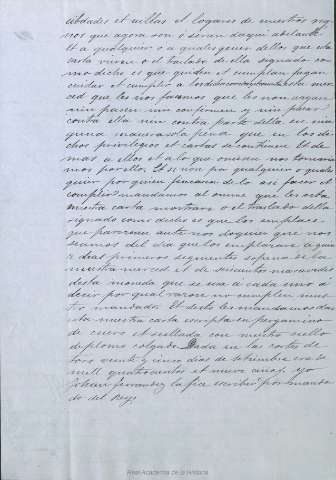 cibdades et villas et logares de nuestros reg
nos que agora son ó seran daqui adelante
et a qualquier o a qualesquier dellos que esta
carta vieren o el traslado della signado co
mo dicho es que guarden et cumplan fagan
guardar et cumplir a los dichos esta mer
ced que les nos facemos que les non vayan
nin pasen nin consienten yr nin pasar
contra ella nin contra parte della en nin
guna manera sola pena que en los di
chos privilegios et cartas se contienen Et de
mas a ellos et a lo que oviesen nos tornaria
mos por ello. Et si non por qualquier o quales
quier por quien fincasen de lo asi facer et
complir mandamos al omme que les esta
nuestra carta mostrare o el traslado della
signado como dicho es que los emplace
que parescan ante nos doquier que nos
seamos del dia que los emplazare a quin
ce dias primeros seguientes so pena de la
nuestra merced et de seiscientos maravedis
desta moneda que se usa a cada uno á
decir por qual razon non cumplen nues
tro mandado Et desto les mandamos dar
esta nuestra carta escripta en pergamino
de cuero et seellada con nuestro seello
de plomo colgado. Dada en las cortes de
toro veinte y cinco dias de Setiembre era de
mill quatrocientos et nueve años. yo
Johan ferrandez la fice escribir por manda
do del Rey.
Real Academia de la Historia